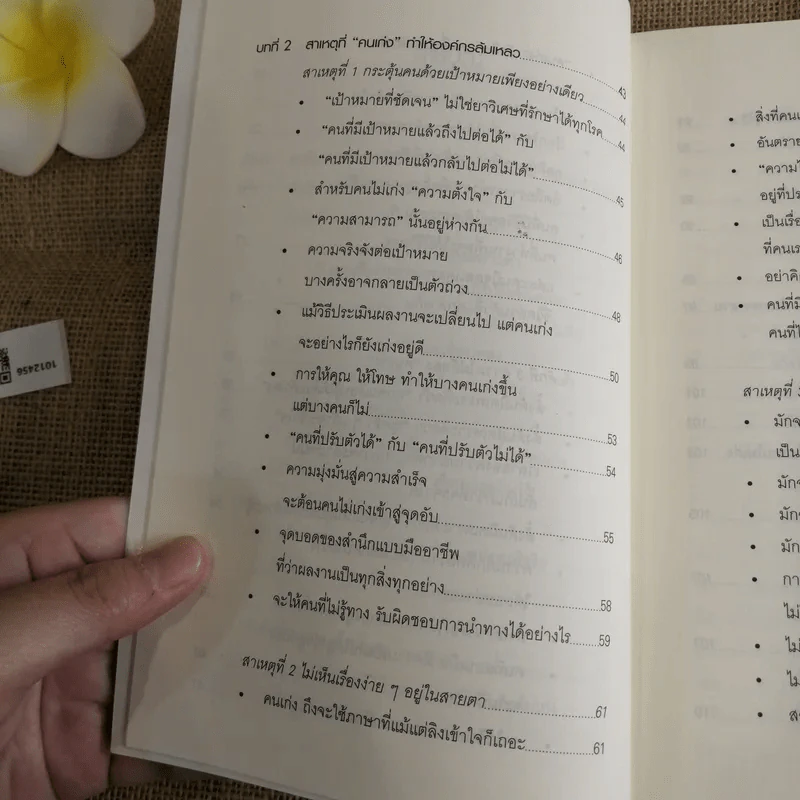 บทที่ 2 สาเหตุที่ “คนเก่ง” ทำให้องค์กรล้มเหลว 43
สาเหตุที่ 1 กระตุ้นคนด้วยเป้าหมายเพียงอย่างเดียว 44
• “เป้าหมายที่ชัดเจน” ไม่ใช่ยาวิเศษที่รักษาได้ทุกโรค 44
• “คนที่มีเป้าหมายแล้วถึงไปต่อได้” กับ
“คนที่มีเป้าหมายแล้วกลับไปต่อไม่ได้” 45
• สำหรับคนไม่เก่ง “ความตั้งใจ” กับ
“ความสามารถ” นั้นอยู่ห่างกัน 46
• ความจริงจังต่อเป้าหมาย
บางครั้งอาจกลายเป็นตัวถ่วง 48
• แม้วิธีประเมินผลงานจะเปลี่ยนไป แต่คนเก่ง
จะอย่างไรก็ยังเก่งอยู่ดี 50
• การให้คุณ ให้โทษ ทำให้บางคนเก่งขึ้น
แต่บางคนก็ไม่ 53
• “คนที่ปรับตัวได้” กับ “คนที่ปรับตัวไม่ได้” 54
• ความมุ่งมั่นสู่ความสำเร็จ
จะต้อนคนไม่เก่งเข้าสู่จุดอับ 55
• จุดบอดของสำนึกแบบมืออาชีพ
ที่ว่าผลงานเป็นทุกสิ่งทุกอย่าง 58
• จะให้คนที่ไม่รู้ทาง รับผิดชอบการนำทางได้อย่างไร 59
สาเหตุที่ 2 ไม่เห็นเรื่องง่าย ๆ อยู่ในสายตา 61
• คนเก่ง ถึงจะใช้ภาษาที่แม้แต่ลิงเข้าใจก็เถอะ 61
1012456
• สิ่งที่คน
• อันตราย
•
อยู่ที่
• เป็นเรื่อ
ที่คน
• อย่าคิ
• คนที่มี
คนที่
สาเหตุที่
• มัก
เป็น
• มัก
• มัก
• มัก
• กา
ไม่
• ไม่
• ไม่
•